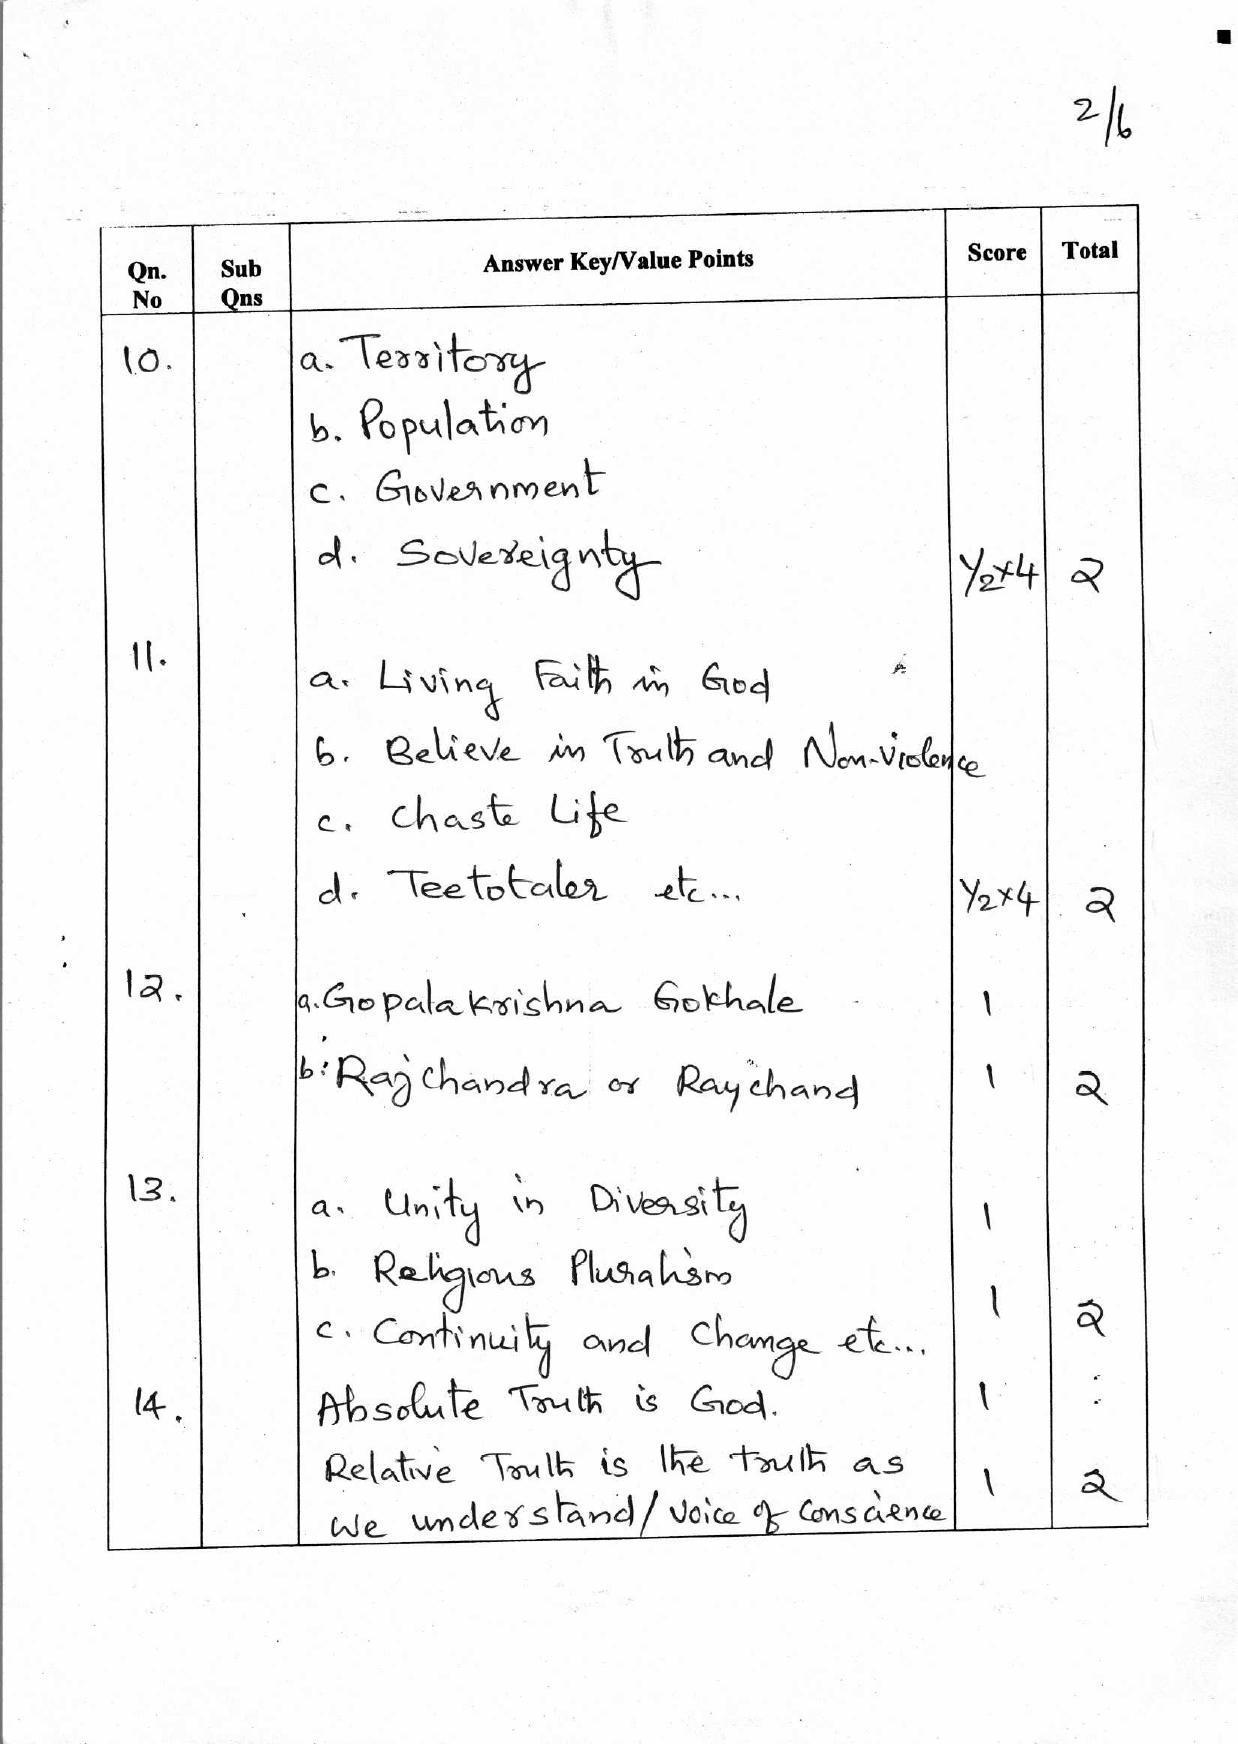 2/6
Qn. No Sub Qns Answer Key/Value Points Score Total
10. a. Territory
b. Population
c. Government
d. Sovereignty ½×4 2
11. a. Living Faith in God
b. Believe in Truth and Non-Violence
c. Chaste Life
d. Teetotaler etc... ½×4 2
12. a. Gopalakrishna Gokhale 1
b: Rajchandra or Raychand 1 2
13. a. Unity in Diversity 1
b. Religious Pluralism 1
c. Continuity and Change etc... 2
14. Absolute Truth is God. 1
Relative Truth is the truth as 1 2
We understand/ Voice of Conscience